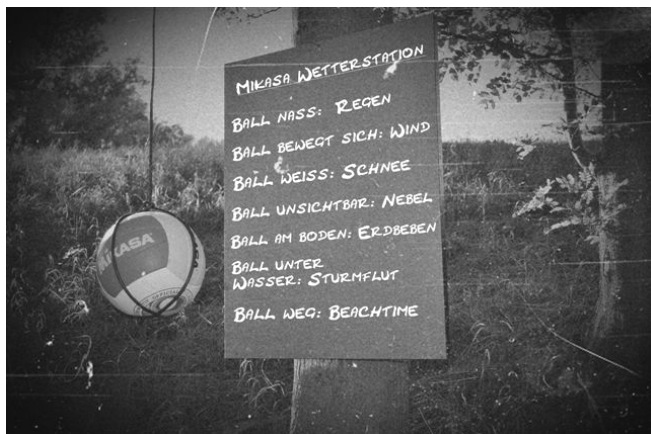 MIKASA WETTERSTATION
BALL NASS: REGEN
BALL BEWEGT SICH: WIND
BALL WEISS: SCHNEE
BALL UNSICHTBAR: NEBEL
BALL AM BODEN: ERDBEBEN
BALL UNTER
WASSER: STURMFLUT
BALL WEG: BEACHTIME
MIKASA